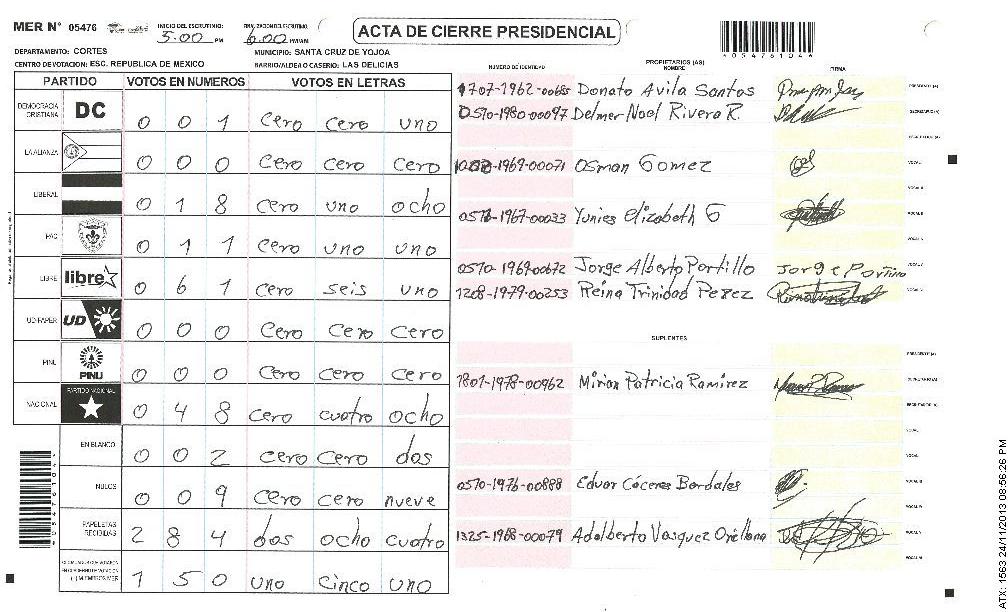 MER N° 05476 INICIO DEL ESCRUTINIO: 5:00 PM FINALIZACION DEL ESCRUTINIO: 6:00 PM/AM ACTA DE CIERRE PRESIDENCIAL
DEPARTAMENTO: CORTES MUNICIPIO: SANTA CRUZ DE YOJOA
CENTRO DE VOTACION: ESC. REPUBLICA DE MEXICO BARRIO/ALDEA O CASERIO: LAS DELICIAS
PARTIDO VOTOS EN NUMEROS VOTOS EN LETRAS
DEMOCRACIA CRISTIANA DC 0 0 1 cero cero uno
LA ALIANZA 0 0 0 cero cero cero
LIBERAL 0 1 8 cero uno ocho
PAC 0 1 1 cero uno uno
LIBRE libre 0 6 1 cero seis uno
UD-FAPER UD 0 0 0 cero cero cero
PINU PINU 0 0 0 cero cero cero
NACIONAL PARTIDO NACIONAL 0 4 8 cero cuatro ocho
EN BLANCO 0 0 2 cero cero dos
NULOS 0 0 9 cero cero nueve
PAPELETAS RECIBIDAS 2 8 4 dos ocho cuatro
1 5 0 uno cinco uno
PROPIETARIOS (AS)
NUMERO DE IDENTIDAD NOMBRE FIRMA
1707-1962-00685 Donato Avila Santos PRESIDENTE (A)
0510-1980-00097 Delmer Noel Rivera R. SECRETARIO (A)
-1969-00071 Osman Gomez VOCAL I
-1967-00033 Yunies Elizabeth G VOCAL III
0510-1969-00672 Jorge Alberto Portillo Jorge Portillo VOCAL V
1208-1979-00253 Reina Trinidad Perez
SUPLENTES
PRESIDENTE (A)
1807-1978-00962 Mirian Patricia Ramirez
0510-1976-00888 Edvar Cáceres Bardales VOCAL III
1325-1968-00079 Adalberto Vasquez Orellana VOCAL V
ATX: 1563 24/11/2013 08:56:26 PM
*05476104*